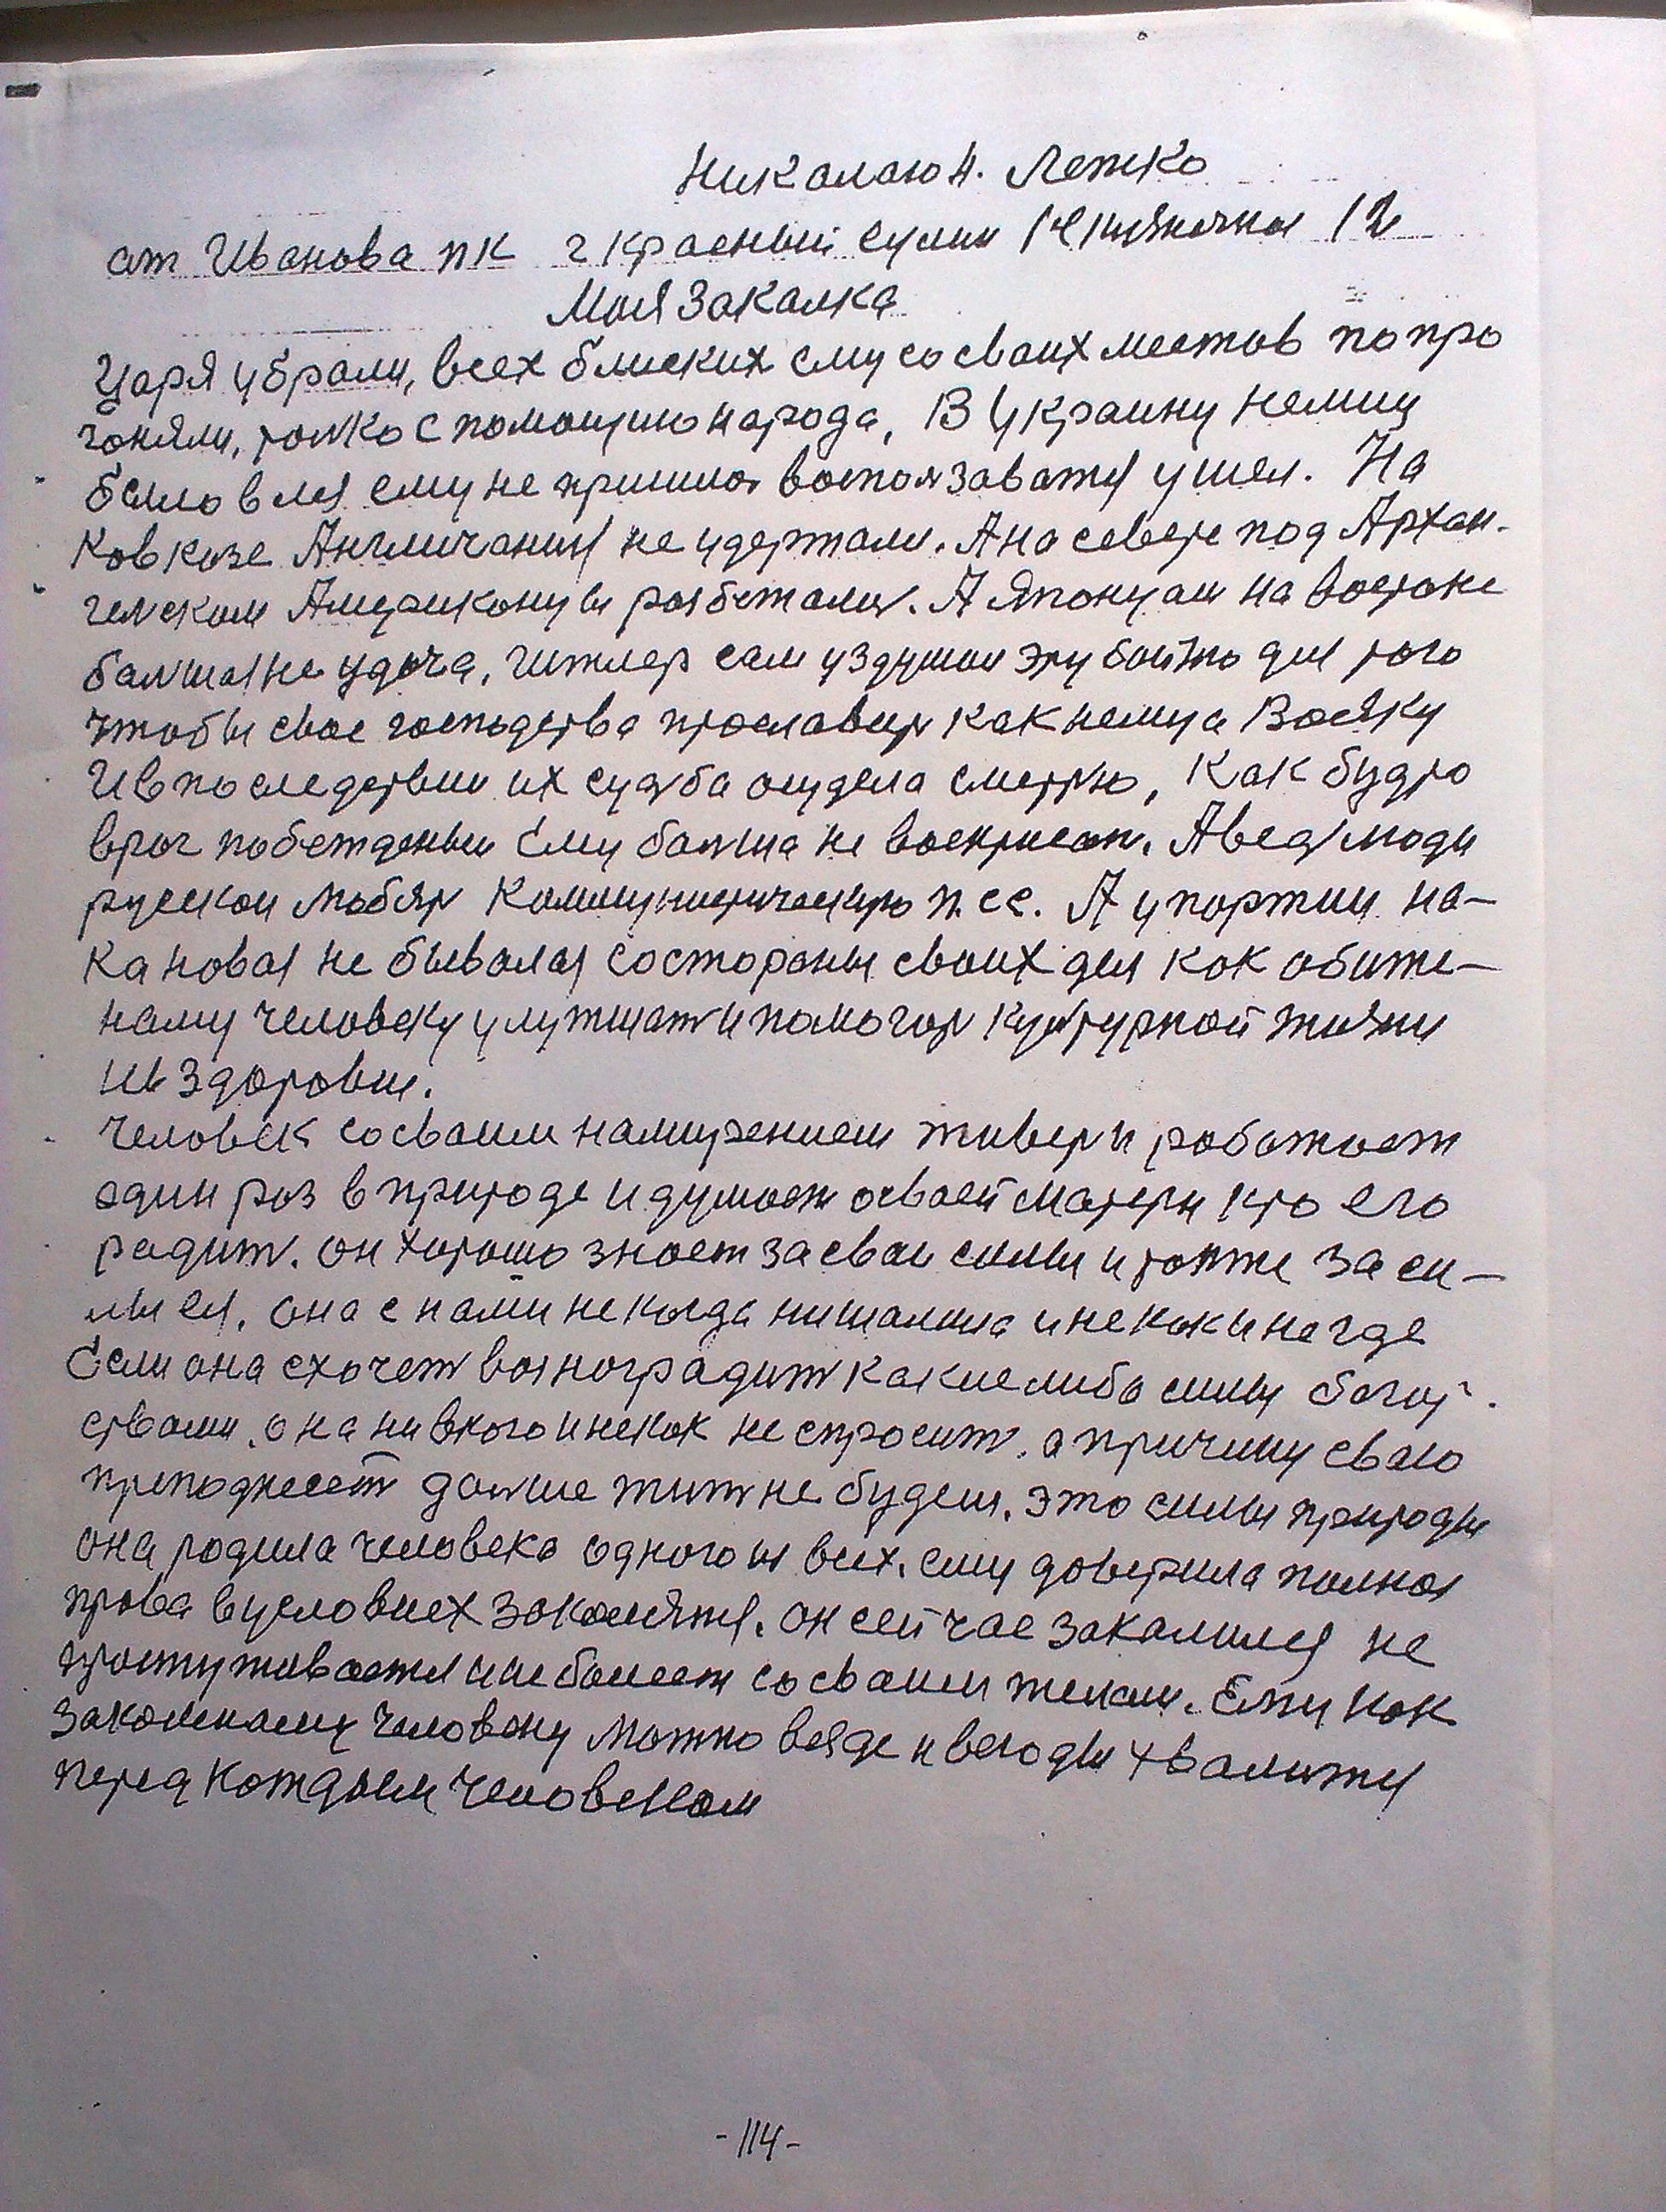 Никалаю Н. Лежко
от Иванова пк г красный сулин 12
Моя Закалка
Царя убрали, всех блиских ему со своих местов попро
гоняли, толко с помощию народа, В Украину немцу
было вля ему не пришлось воспользаватся ушел. На
Ковказе Англичанин не удержали. А на севере под Архан-
гелском Американцы розбежались. А Японцам на востоке
балшая не удача, гитлер сам уздумал эту бойню для того
чтобы свое господства прославить как немца Вояку
И в последствии их судьба осудела смертю, Как будто
враг побежденый Ему балша не воскресат. А ведь люди
русскои любять Коммунистическую п. сс. А у портии на-
ка новая не бывалая состороны своих дел как обиже-
наму человеку улутшать и помогать культурной жизни
и в здоровии.
Человек со своим намирением живет и работает
один роз в природе и думает освоей матери кто его
родит. он хорошо знает за свои силы и тоже за си-
лы ея. она с нами не когда ни шалила и не как и не где
Если она схочет вознаградить какие либо силы богат-
ствами. она ни вкого и некак не спросить. а причину сваю
преподнесет далше жить не будеш. это силы природы
она родила человека одного из всех. ему доверила полное
права в условиях закалятся. он сейчас закалился не
простуживается и не болеет со своим телам. Ему как
закаленаму человеку можно везде и всегды хвалится
перед каждым человеком
-114-